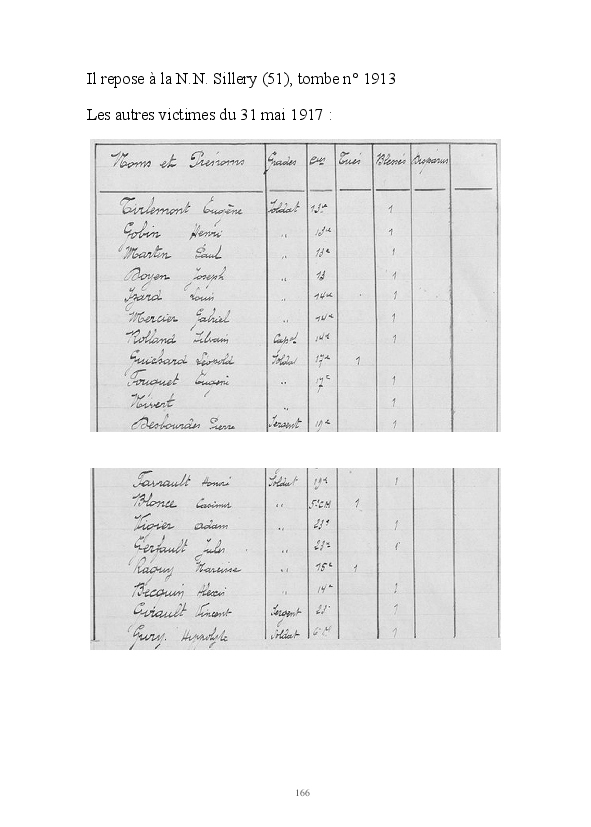 Il repose à la N.N. Sillery (51), tombe n° 1913
Les autres victimes du 31 mai 1917 :
Noms et Prénoms Grades Cies Tués Blessés Disparus
Tirlemont Eugène Soldat 13e 1
Gobin Henri " 13e 1
Martin Paul " 13e 1
Boyen Joseph " 13 1
Izard Louis " 14e 1
Mercier Gabriel " 14e 1
Rolland Silvain 14e 1
Guichard Léopold Soldat 17e 1
Fouquet Eugène " 17e 1
Nivert " 1
Desbourdes Pierre Sergent 19e 1
Farrault Henri Soldat 19e 1
Blonce Casimir " 1
Vigier Adam " 23e 1
Gerfault Jules " 23e 1
Raouy " 15e 1
Becouin Alexis " 14e 1
Girault Vincent Sergent 23e 1
Gury Hippolyte Soldat 1
166